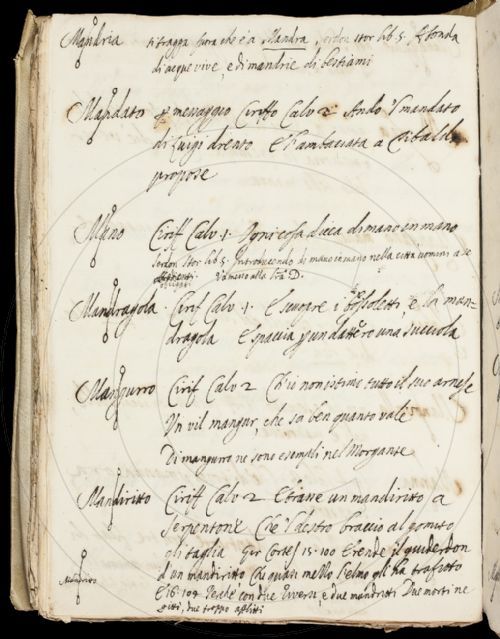 Mandria si tragga fuora che è a Mandra, Serdon stor lib. 5. Abonda
di acque vive, e di mandrie di bestiami
Mandato p messaggio Ciriffo Calv 2 Andò 'l mandato
di Luigi drento E l'ambasciata a Tibaldo
propose
Mano Ciriff Calv. 1. Ogni cosa dica di mano in mano
Serdon stor lib. 5. Introducendo di mano in mano nella città uomini a se
Mandragola. Cirif Calv. 1. E suonare i bossoletti, e la man=
dragola E spaccia p un dattero una succiola
Mangurro Cirif Calv 2 Ch'io non istimo tutto il suo arnese
Un vil mangur, che so ben quanto vale
Di mangurro ne sono esempli nel Morgante
Mandiritto Ciriff Calv 2 E trasse un mandiritto a
Serpentone Che 'l destro braccio al gomito
gli taglia Gir Cortes 15. 100 E rende il guiderdon
Mandritto d'un mandiritto Che quasi mezzo l'elmo gli ha trafitto
E 16. 104 Perche con due riversi, e due mandritti Due morti ne
gittò, due troppo afflitti